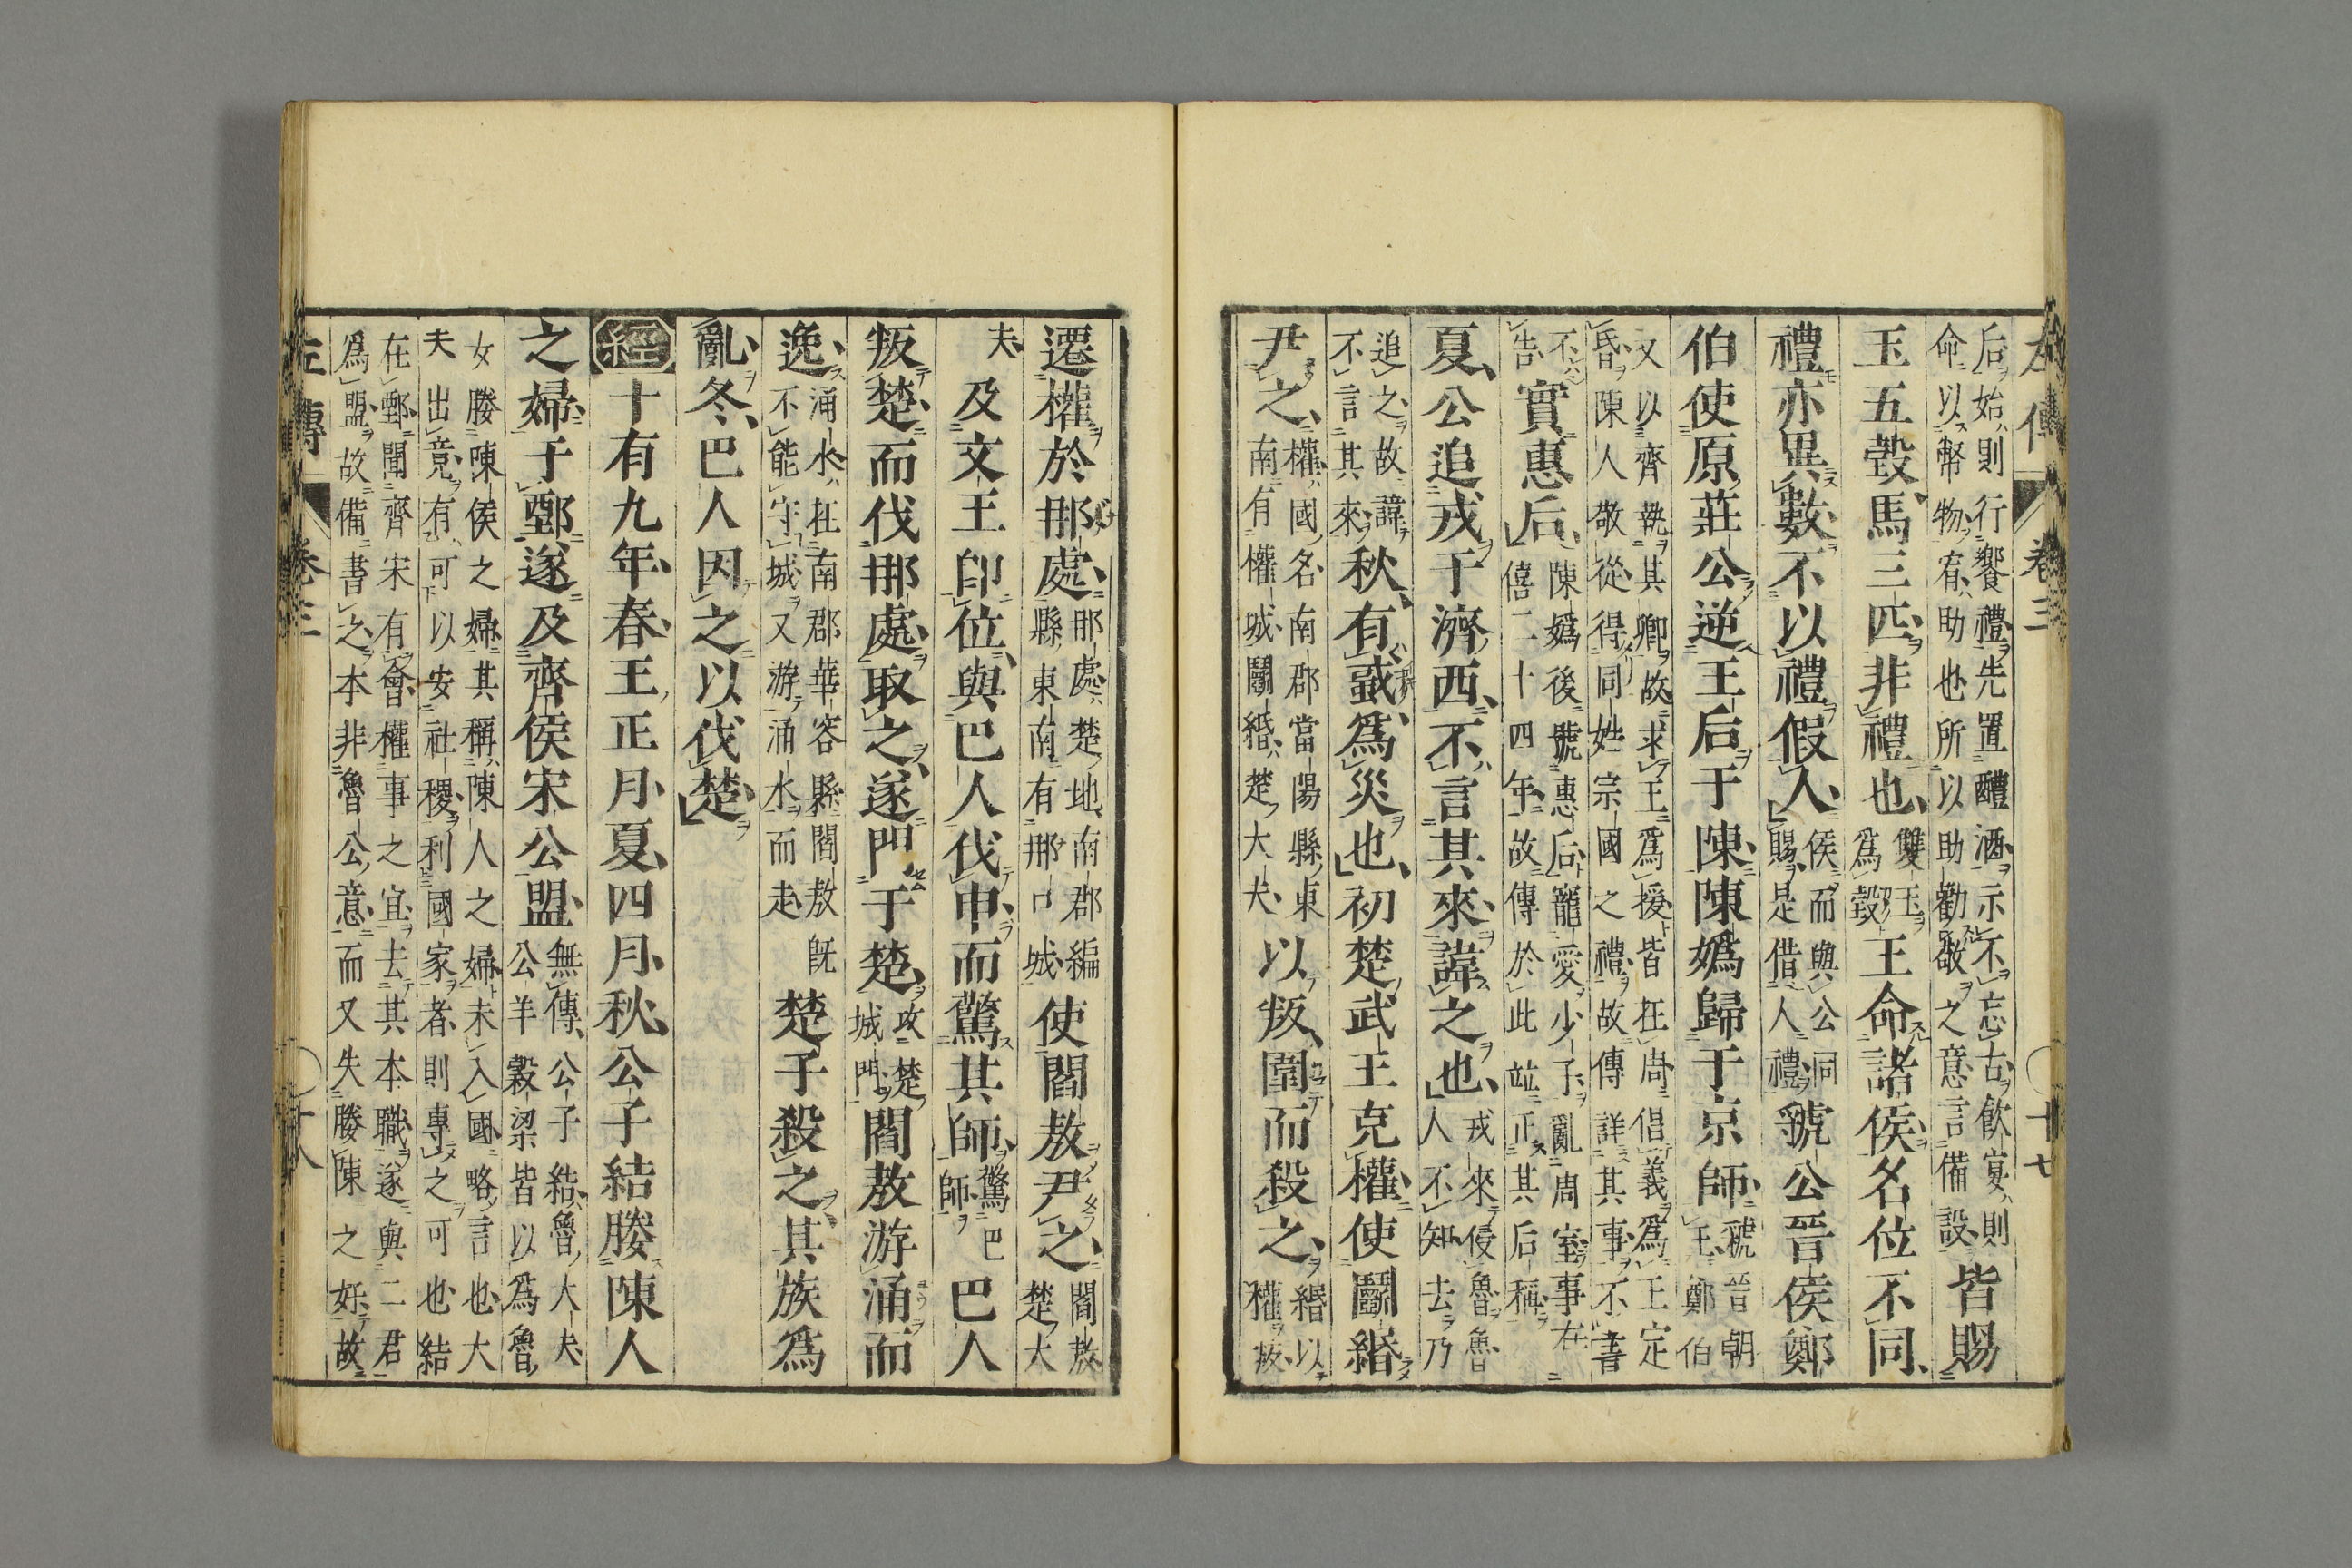 左傳 卷三 十七
后始則行饗禮先置醴酒示不忘古飲宴則
命以幣物宥助也所以助勸敬之意言備設
皆賜
玉五瑴馬三匹非禮也
雙玉
爲瑴
王命諸侯名位不同
禮亦異數不以禮假人
侯而與公同
賜是借人禮
虢公晉侯鄭
伯使原莊公逆王后于陳陳嬀歸于京師
虢晉朝
王鄭伯
又以齊執其卿故求王爲援皆在周倡義爲王定
昏陳人敬從得同姓宗國之禮故傳詳其事不書
不
告
實惠后
陳嬀後號惠后寵愛少子亂周室事在
僖二十四年故傳於此並正其后稱
夏公追戎于濟西不言其來諱之也
戎來侵魯魯
人不知去乃
追之故諱
不言其來
秋有蜮爲災也初楚武王克權使鬬緡
尹之
權國名南郡當陽縣東
南有權城鬬緡楚大夫
以叛圍而殺之
緡以
權叛
遷權於那處
那處楚地南郡編
縣東南有那口城
使閻敖尹之
閻敖
楚大
夫
及文王卽位與巴人伐申而驚其師
驚巴
師
巴人
叛楚而伐那處取之遂門于楚
攻楚
城門
閻敖游涌而
逸
涌水在南郡華容縣閻敖旣
不能守城又游涌水而走
楚子殺之其族爲
亂冬巴人因之以伐楚
經 十有九年春王正月夏四月秋公子結媵陳人
之婦于鄄遂及齊侯宋公盟
無傳公子結魯大夫
公羊穀梁皆以爲魯
女媵陳侯之婦其稱陳人之婦未入國略言也大
夫出竟有可以安社稷利國家者則專之可也結
在鄄聞齊宋有會權事之宜去其本職遂與二君
爲盟故備書之本非魯公意而又失媵陳之好故
左傳 卷三 十八